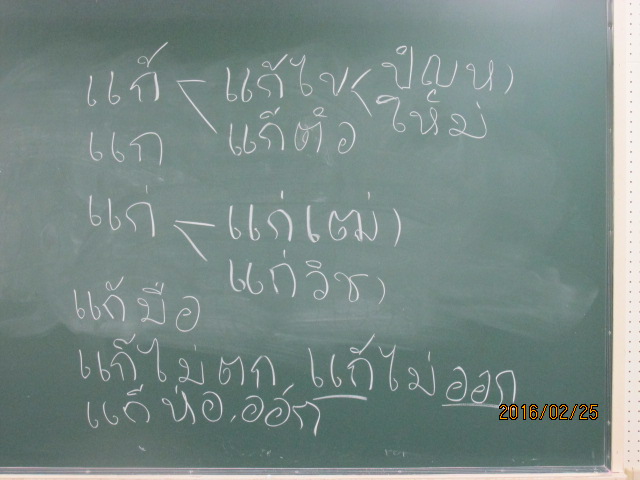 แก้ < แก้ไข < ปัญหา
ให้ม่
แก แก้ตัว
แก่ < แก่เฒ่า
แก่วิชา
แก้มือ
แก้ไม่ตก แก้ไม่ออก
แก้ห่อ.ออก
2016/02/25